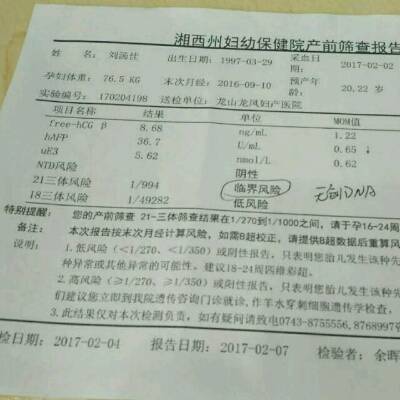 湘西州妇幼保健院产前筛查报告
姓名: 刘 佳 出生日期: 1997-03-29 采血日期: 2017-02-02
孕妇体重: 76.5 KG 末次月经: 2016-09-10 预产年龄: 20.22 岁
实验编号: 170204198 送检单位: 龙山龙凤妇产医院
项目名称 结果 单位 MOM值
free-hCG β 8.68 ng/mL 1.22
hAFP 36.7 U/mL 0.65 ↓
uE3 5.62 nmol/L 0.62
NTD风险 阴性
21三体风险 1/994 临界风险 无创DNA
18三体风险 1/49282 低风险
特别提醒: 您的产前筛查 21-三体筛查结果在1/270到1/1000之间, 请于孕16-24周
备注: 本次报告按末次月经计算风险, 如需B超校正, 请提供B超数据后重算风
说明: 1.低风险(<1/270、<1/350)或阴性报告, 只表明您胎儿发生该种先
种异常或其他异常的可能性, 建议18-24周四维彩超。
2.高风险(≥1/270、≥1/350)或阳性报告, 只表明您胎儿发生该种先
们建议您立即到我院遗传咨询门诊就诊, 作羊水穿刺细胞遗传学检查,
3.此结果仅对本次检测负责, 如有疑问请致电0743-8755556, 8768997咨
检日期: 2017-02-04 报告日期: 2017-02-07 检验者: 余晖